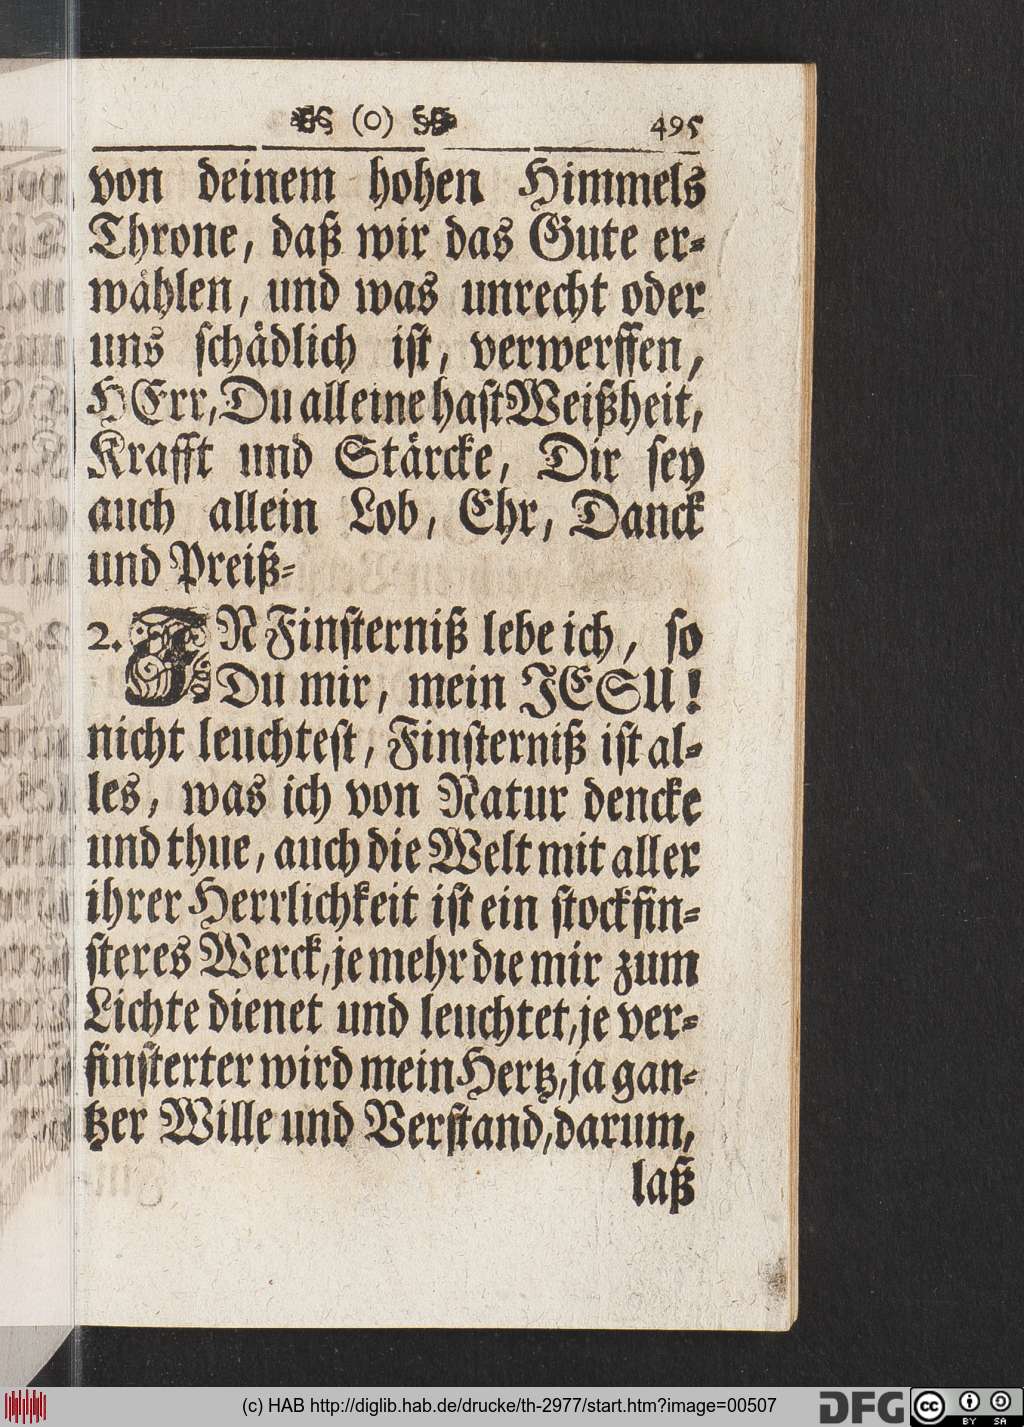 (o) 495
von deinem hohen Himmels
Throne, daß wir das Gute er-
wählen, und was unrecht oder
uns schädlich ist, verwerffen,
HErr, Du alleine hast Weißheit,
Krafft und Stärcke, Dir sey
auch allein Lob, Ehr, Danck
und Preiß-
2. IN Finsterniß lebe ich, so
Du mir, mein JESU!
nicht leuchtest, Finsterniß ist al-
les, was ich von Natur dencke
und thue, auch die Welt mit aller
ihrer Herrlichkeit ist ein stockfin-
steres Werck, je mehr die mir zum
Lichte dienet und leuchtet, je ver-
finsterter wird mein Hertz, ja gan-
tzer Wille und Verstand, darum,
laß
(c) HAB http://diglib.hab.de/drucke/th-2977/start.htm?image=00507
DFG
cc BY SA